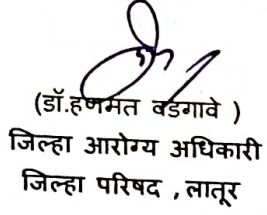 (डॉ.हणमंत वडगावे )
जिल्हा आरोग्य अधिकारी
जिल्हा परिषद , लातूर